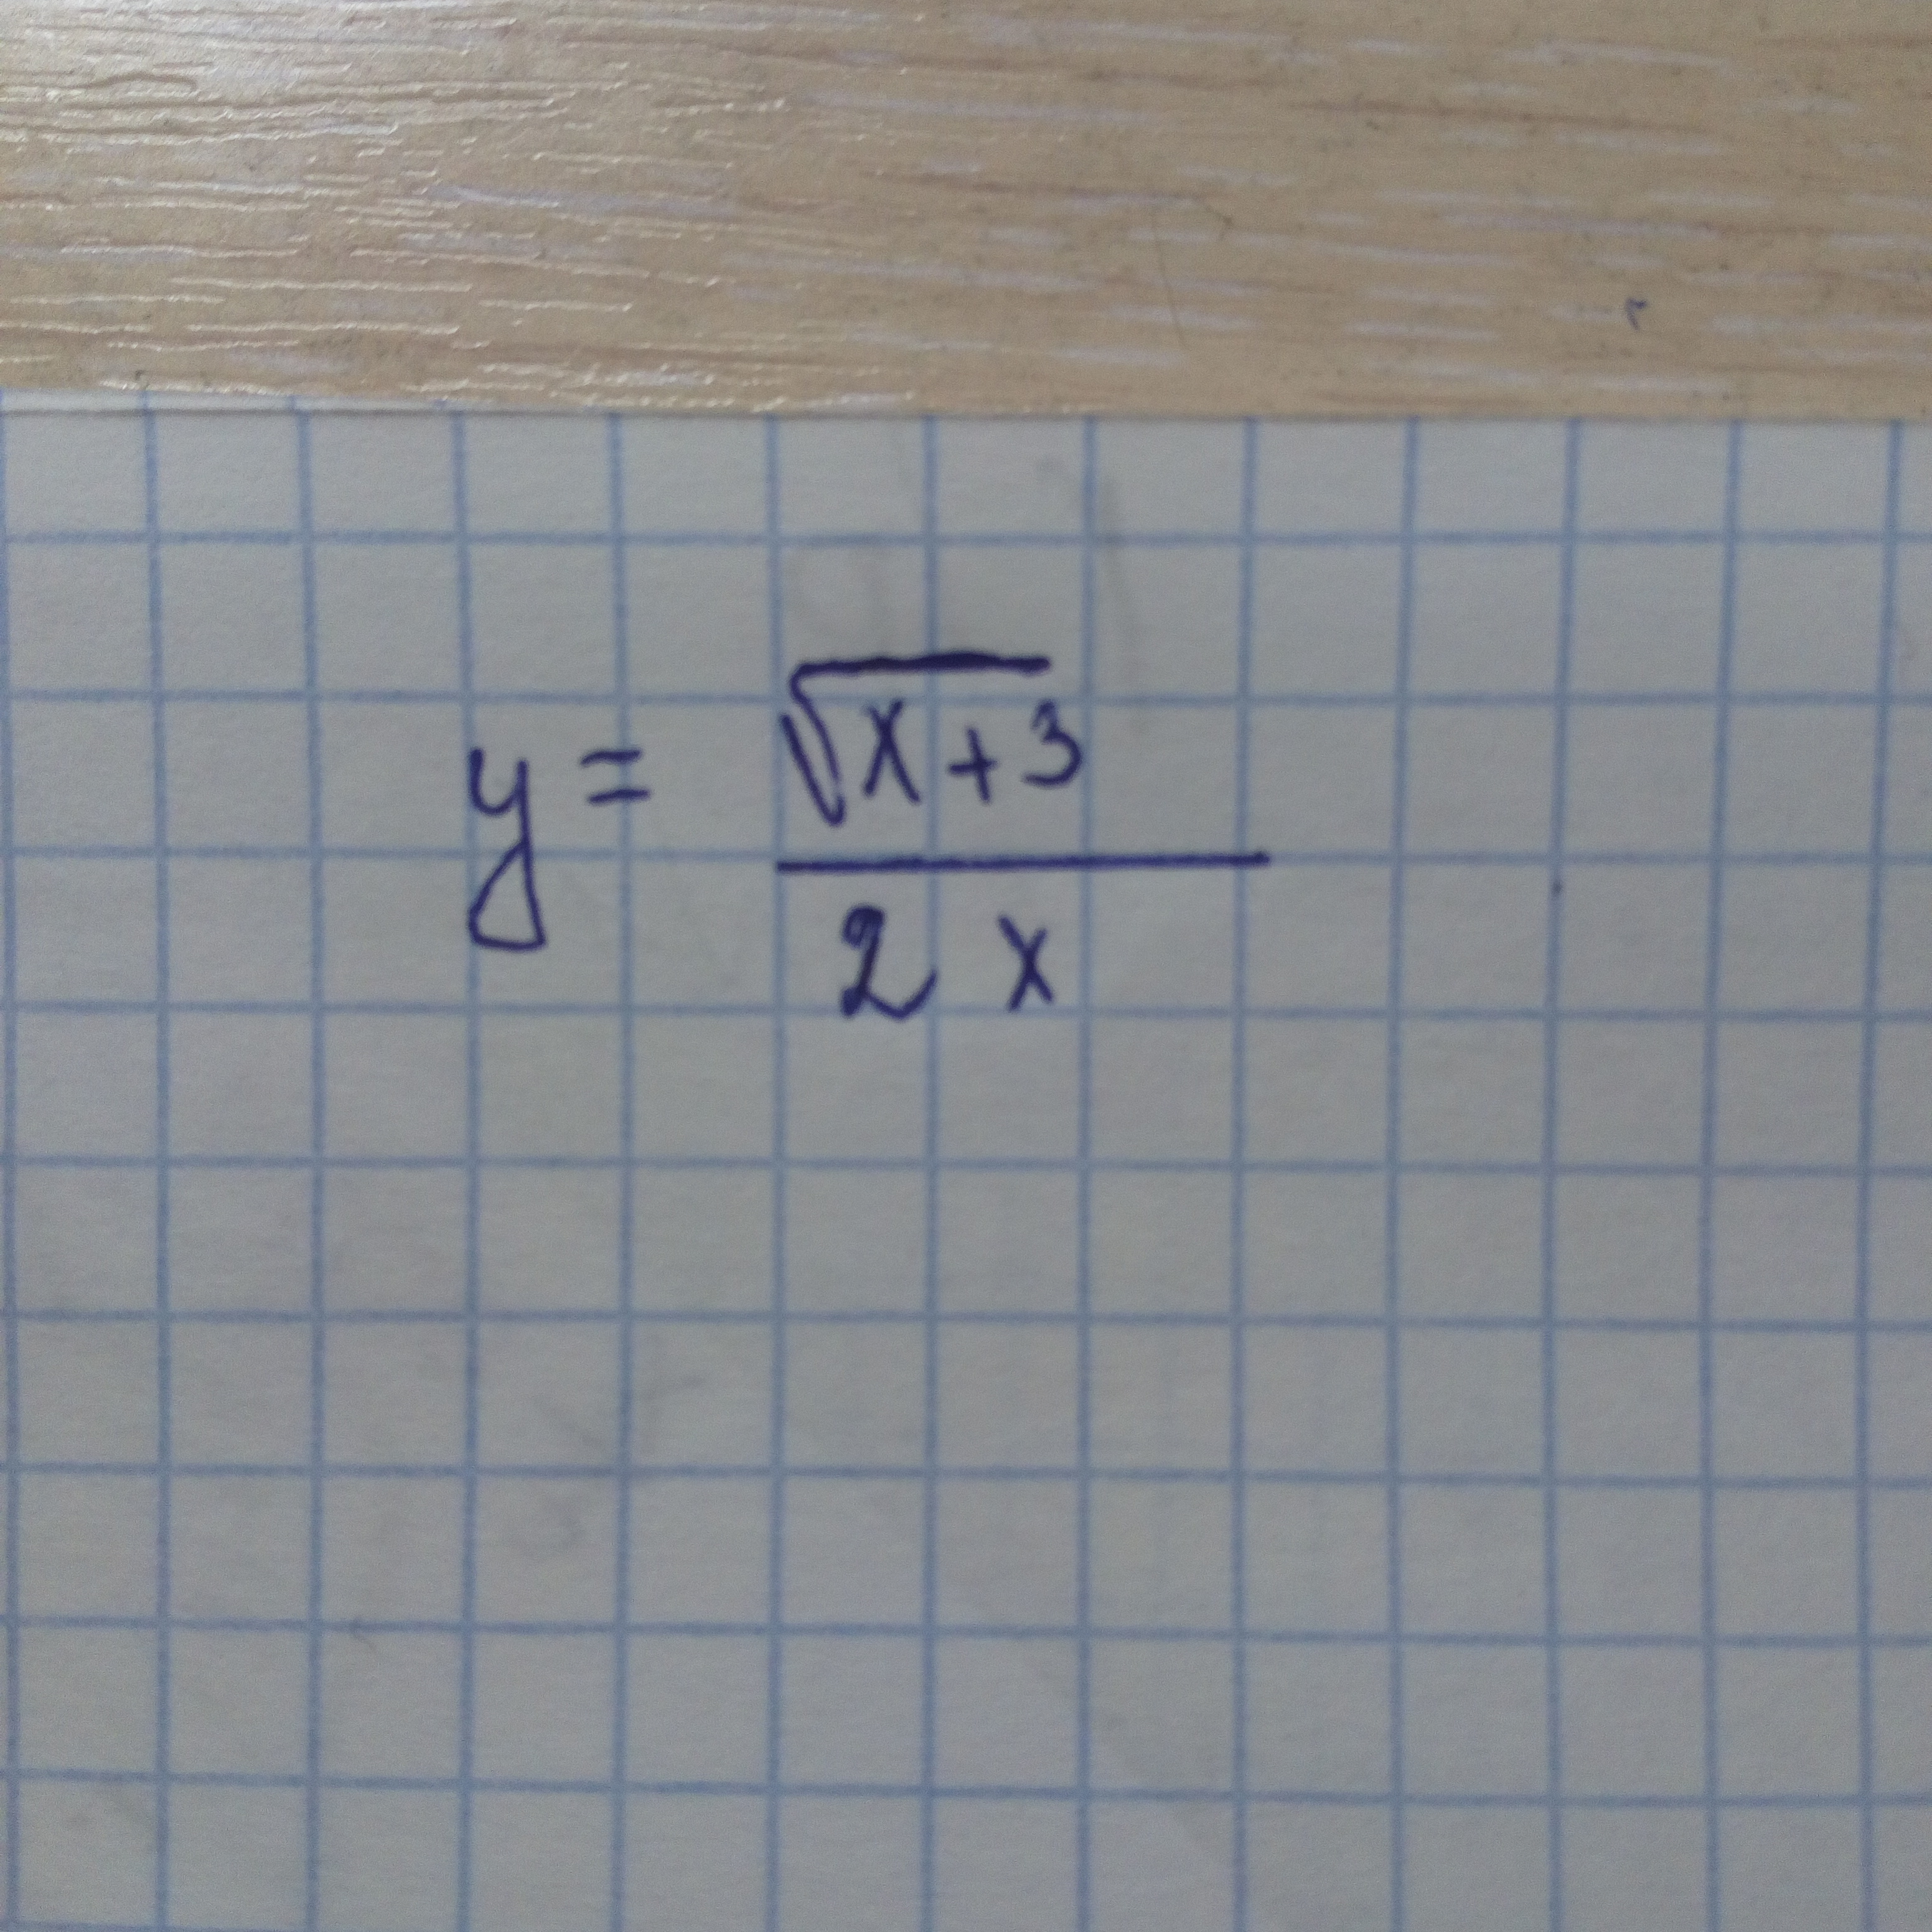 y = √(x + 3) / 2 x